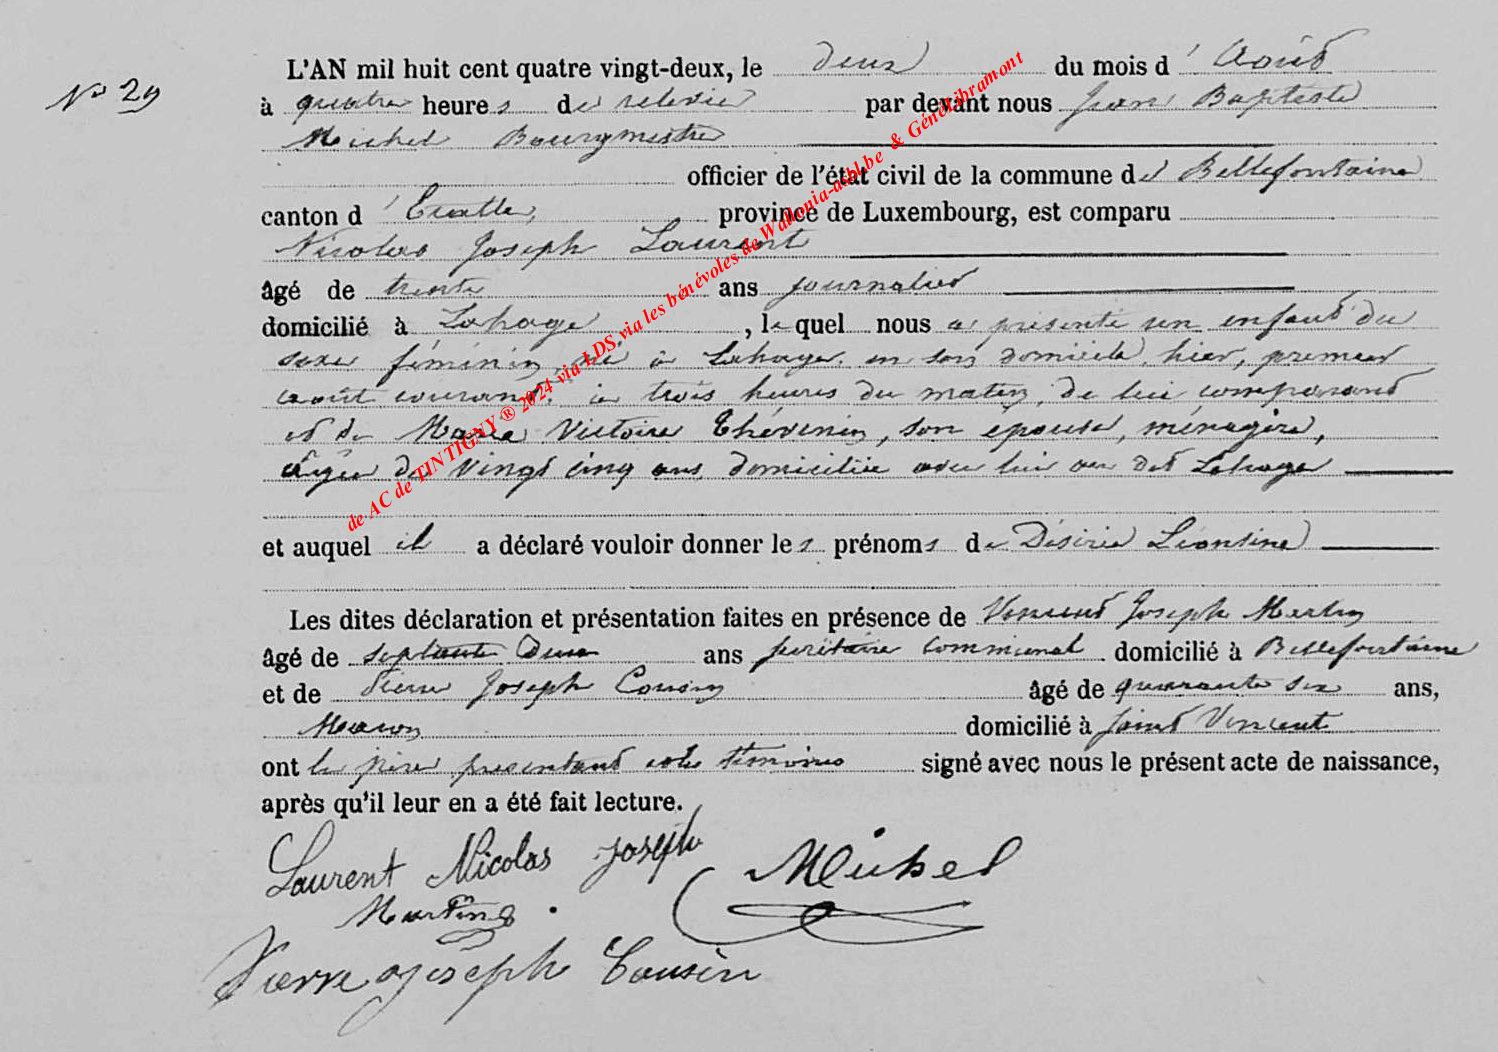 N° 29
L'AN mil huit cent quatre vingt-deux, le deux du mois d'Août
à quatre heures de relevée par devant nous Jean Baptiste
Michel Bourgmestre
officier de l'état civil de la commune de Bellefontaine
canton d'Etalle, province de Luxembourg, est comparu
Nicolas Joseph Laurent
âgé de trente ans journalier
domicilié à Lahage, lequel nous a présenté un enfant du
sexe féminin, né à Lahage, en son domicile, hier, premier
août courant, à trois heures du matin, de lui comparant
et de Marie Victoire Thévenin, son épouse, ménagère,
âgée de vingt cinq ans domiciliée avec lui au dit Lahage
et auquel il a déclaré vouloir donner les prénoms de Désirée Léontine
Les dites déclaration et présentation faites en présence de Vincent Joseph Martin
âgé de septante Deux ans secrétaire communal domicilié à Bellefontaine
et de Pierre Joseph Cousin âgé de quarante six ans,
Maçon domicilié à Saint Vincent
ont le père présentant et les témoins signé avec nous le présent acte de naissance,
après qu'il leur en a été fait lecture.
Laurent Nicolas Joseph
Michel
Martin
Pierre Joseph Cousin
de AC de TINTIGNY ® 2024 via LDS via les bénévoles de Wallonia-asbl.be & Généalibramont